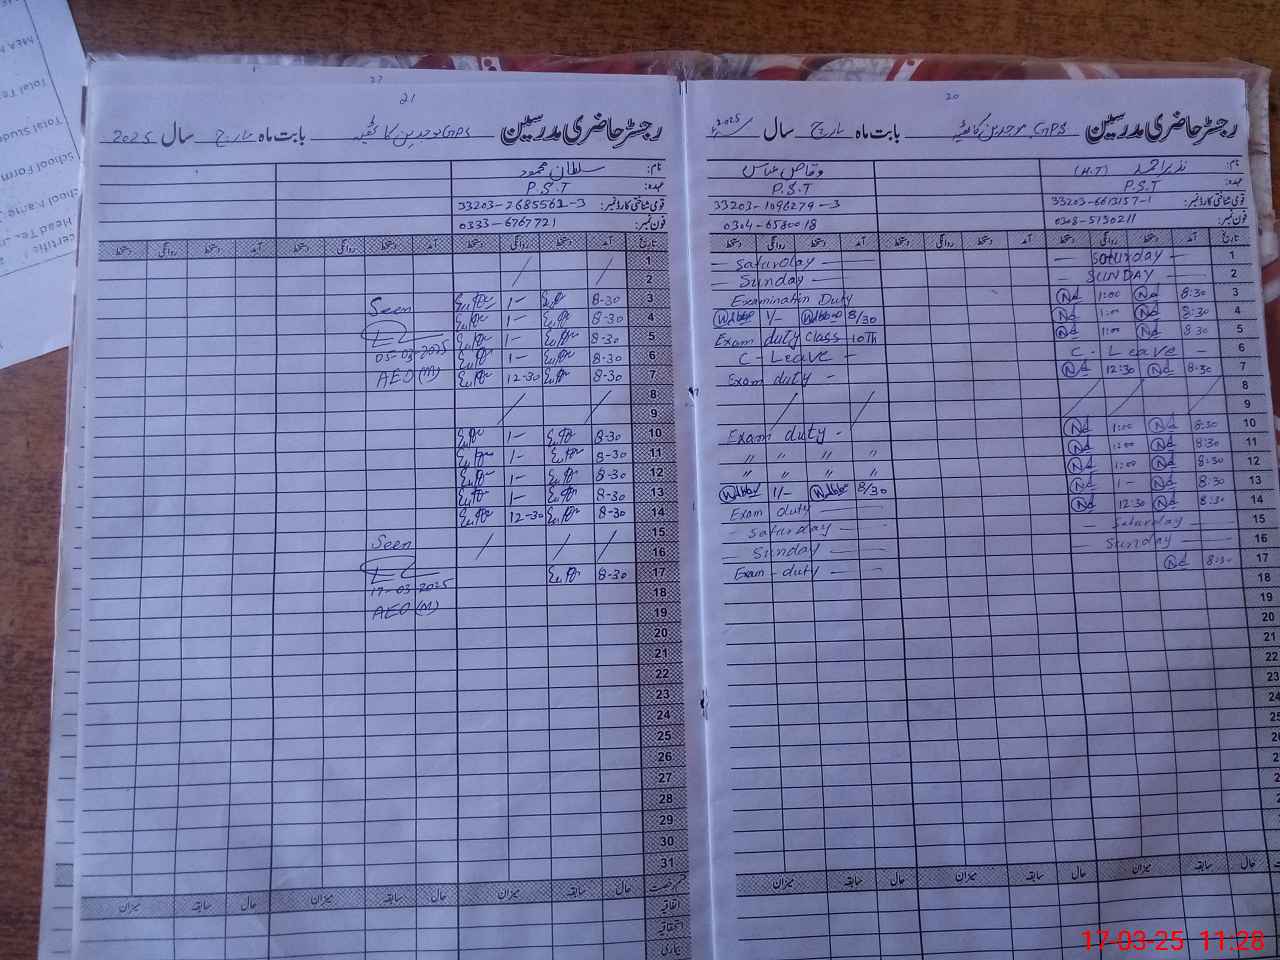 20
رجسٹر حاضری مدرسین GPS موحدین کاٹھیہ بابت ماہ مارچ سال 2025
نام: نذیر احمد (H.T) وقاص عباس
عہدہ: P.S.T P.S.T
قومی شناختی کارڈ نمبر: 33203-6613157-1 33203-1096279-3
فون نمبر: 0308-5130211 0304-6580018
تاریخ آمد دستخط روانگی دستخط آمد دستخط روانگی دستخط آمد دستخط روانگی دستخط
1 — Saturday — — Saturday —
2 — SUNDAY — — Sunday —
3 8:30 Nd 1:00 Nd Examination Duty
4 8:30 Nd 1:00 Nd 8/30 1/-
5 8:30 Nd 1:00 Nd Exam duty class 10Th
6 C - Leave — C - Leave —
7 8:30 Nd 12:30 Nd Exam duty -
8
9
10 8:30 Nd 1:00 Nd Exam duty -
11 8:30 Nd 1:00 Nd " " " "
12 8:30 Nd 1:00 Nd " " " "
13 8:30 Nd 1- Nd 8/30 1/-
14 8:30 Nd 12:30 Nd Exam duty —
15 — Saturday — — Saturday —
16 — Sunday — — Sunday —
17 8:30 Nd Exam - duty —
18
19
20
21
22
23
24
25
26
27
28
29
30
31
حال سابقہ میزان حال سابقہ میزان حال سابقہ میزان
21
رجسٹر حاضری مدرسین GPS موحدین کاٹھیہ بابت ماہ مارچ سال 2025
نام: سلطان محمود
عہدہ: P.S.T
قومی شناختی کارڈ نمبر: 33203-2685562-3
فون نمبر: 0333-6767721
تاریخ آمد دستخط روانگی دستخط آمد دستخط روانگی دستخط آمد دستخط روانگی دستخط
1
2
3 8-30 1- Seen
4 8-30 1-
5 8-30 1- 05-03-2025
6 8-30 1-
7 8-30 12-30 AEO (M)
8
9
10 8-30 1-
11 8-30 1-
12 8-30 1-
13 8-30 1-
14 8-30 12-30
15 Seen
16
17 8-30
18 17-03-2025
19 AEO (M)
20
21
22
23
24
25
26
27
28
29
30
31
قسم رخصت حال سابقہ میزان حال سابقہ میزان حال سابقہ میزان
اتفاقیہ
استحقاقیہ
بیماری
Total Stude
School Form
Head Te
17-03-25 11:28